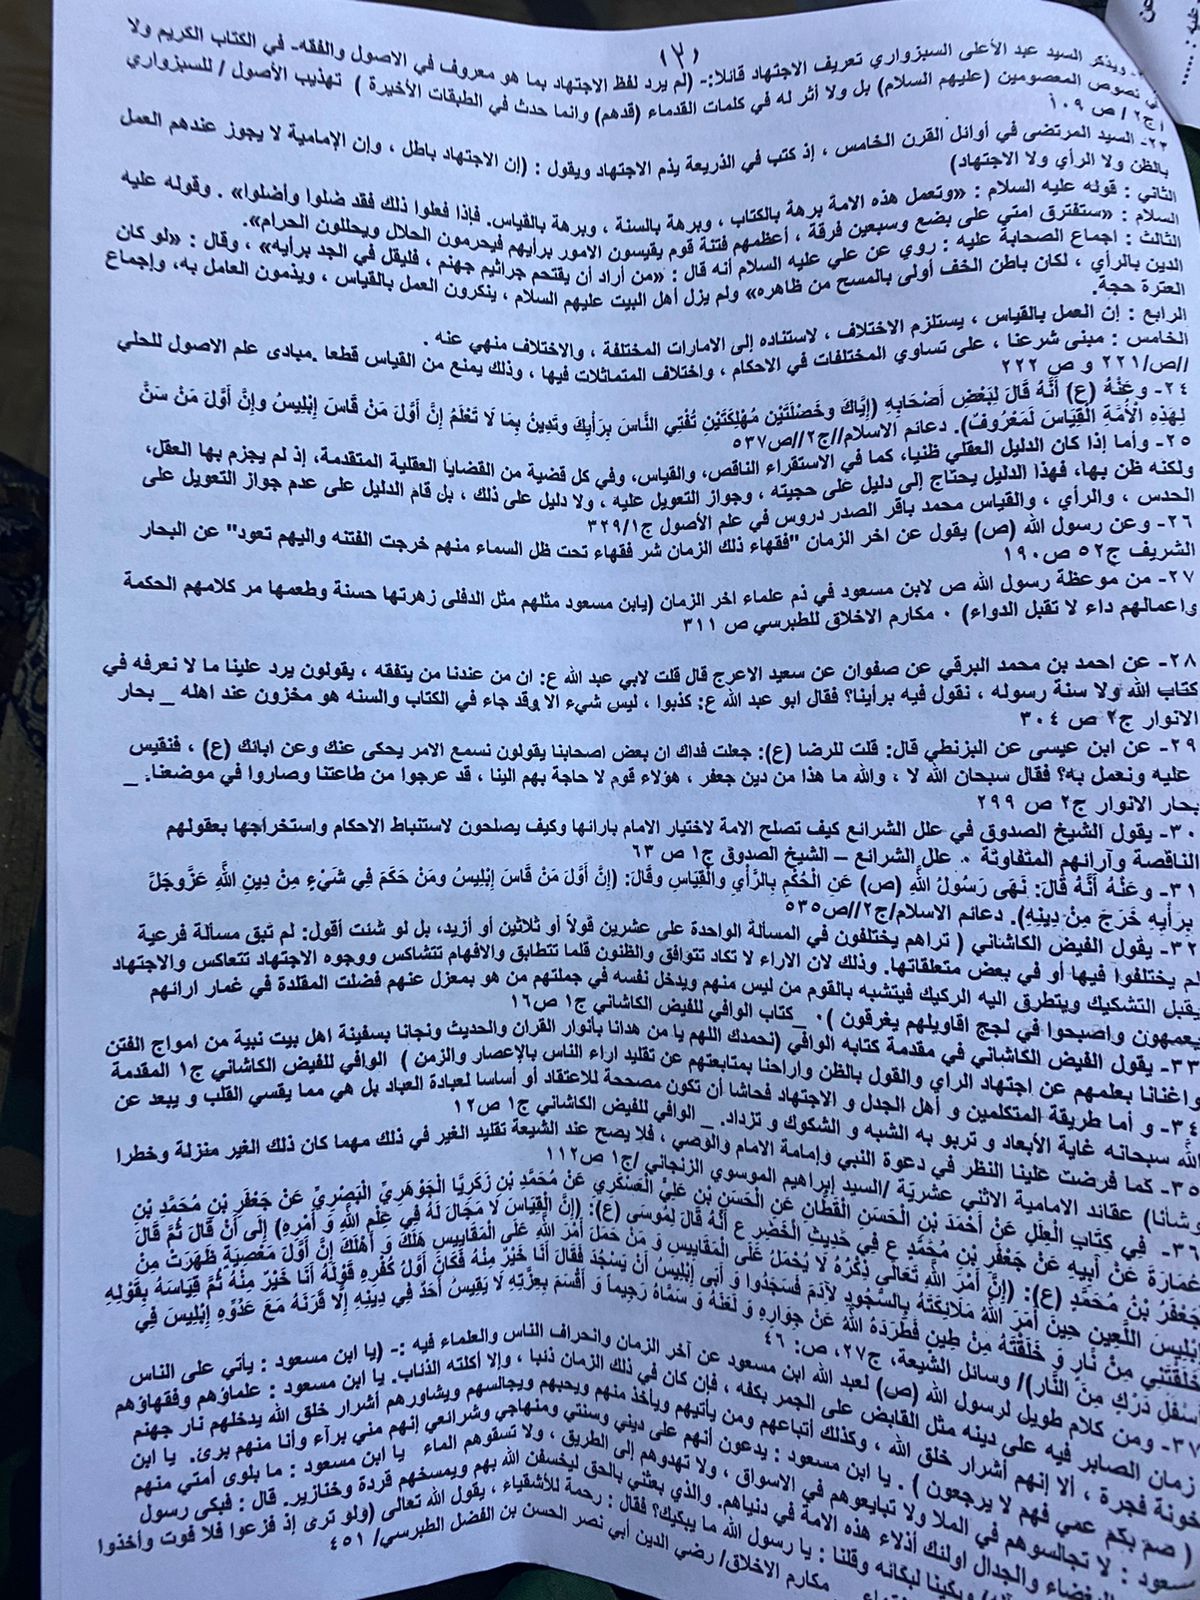 (٣)
- ويذكر السيد عبد الأعلى السبزواري تعريف الاجتهاد قائلا:- (لم يرد لفظ الاجتهاد بما هو معروف في الاصول والفقه- في الكتاب الكريم ولا
في نصوص المعصومين (عليهم السلام) بل ولا أثر له في كلمات القدماء (قدهم) وانما حدث في الطبقات الأخيرة ) تهذيب الأصول / للسبزواري
/ج٢ / ص ١٠٩
٢٣- السيد المرتضى في أوائل القرن الخامس ، إذ كتب في الذريعة يذم الاجتهاد ويقول : (إن الاجتهاد باطل ، وإن الإمامية لا يجوز عندهم العمل
بالظن ولا الرأي ولا الاجتهاد)
الثاني : قوله عليه السلام : «وتعمل هذه الامة برهة بالكتاب ، وبرهة بالسنة ، وبرهة بالقياس. فإذا فعلوا ذلك فقد ضلوا وأضلوا» . وقوله عليه
السلام : «ستفترق امتي على بضع وسبعين فرقة ، أعظمهم فتنة قوم يقيسون الامور برأيهم فيحرمون الحلال ويحللون الحرام».
الثالث : اجماع الصحابة عليه : روي عن علي عليه السلام أنه قال : «من أراد أن يقتحم جراثيم جهنم ، فليقل في الجد برأيه» ، وقال : «لو كان
الدين بالرأي ، لكان باطن الخف أولى بالمسح من ظاهره» ولم يزل أهل البيت عليهم السلام ، ينكرون العمل بالقياس ، ويذمون العامل به، وإجماع
العترة حجة.
الرابع : إن العمل بالقياس ، يستلزم الاختلاف ، لاستناده إلى الامارات المختلفة ، والاختلاف منهي عنه .
الخامس : مبنى شرعنا ، على تساوي المختلفات في الاحكام ، واختلاف المتماثلات فيها ، وذلك يمنع من القياس قطعا .مبادى علم الاصول للحلي
//ص/٢٢١ و ص ٢٢٢
٢٤- وعَنْهُ (ع) أَنَّهُ قَالَ لِبَعْضِ أَصْحَابِهِ (إِيَّاكَ وخَصْلَتَيْنِ مُهْلِكَتَيْنِ تُفْتِي النَّاسَ بِرَأْيِكَ وتَدِينُ بِمَا لَا تَعْلَمُ إِنَّ أَوَّلَ مَنْ قَاسَ إِبْلِيسُ وإِنَّ أَوَّلَ مَنْ سَنَّ
لِهَذِهِ الْأُمَّةِ الْقِيَاسَ لَمَعْرُوفٌ). دعائم الاسلام//ج٢//ص٥٣٧
٢٥- وأما إذا كان الدليل العقلي ظنيا، كما في الاستقراء الناقص، والقياس، وفي كل قضية من القضايا العقلية المتقدمة، إذ لم يجزم بها العقل،
ولكنه ظن بها، فهذا الدليل يحتاج إلى دليل على حجيته ، وجواز التعويل عليه ، ولا دليل على ذلك ، بل قام الدليل على عدم جواز التعويل على
الحدس ، والرأي ، والقياس محمد باقر الصدر دروس في علم الأصول ج٣٢٩/١
٢٦- وعن رسول الله (ص) يقول عن اخر الزمان "فقهاء ذلك الزمان شر فقهاء تحت ظل السماء منهم خرجت الفتنه واليهم تعود" عن البحار
الشريف ج٥٢ ص١٩٠
٢٧- من موعظة رسول الله ص لابن مسعود في ذم علماء اخر الزمان (يابن مسعود مثلهم مثل الدفلى زهرتها حسنة وطعمها مر كلامهم الحكمة
واعمالهم داء لا تقبل الدواء) ٠ مكارم الاخلاق للطبرسي ص ٣١١
٢٨- عن احمد بن محمد البرقي عن صفوان عن سعيد الاعرج قال قلت لابي عبد الله ع: ان من عندنا من يتفقه ، يقولون يرد علينا ما لا نعرفه في
كتاب الله ولا سنة رسوله ، نقول فيه برأينا؟ فقال ابو عبد الله ع: كذبوا ، ليس شيء الا وقد جاء في الكتاب والسنه هو مخزون عند اهله _ بحار
الانوار ج٢ ص ٣٠٤
٢٩- عن ابن عيسى عن البزنطي قال: قلت للرضا (ع): جعلت فداك ان بعض اصحابنا يقولون نسمع الامر يحكى عنك وعن ابائك (ع) ، فنقيس
عليه ونعمل به؟ فقال سبحان الله لا ، والله ما هذا من دين جعفر ، هؤلاء قوم لا حاجة بهم الينا ، قد عرجوا من طاعتنا وصاروا في موضعنا. _
بحار الانوار ج٢ ص ٢٩٩
٣٠- يقول الشيخ الصدوق في علل الشرائع كيف تصلح الامة لاختيار الامام بارائها وكيف يصلحون لاستنباط الاحكام واستخراجها بعقولهم
الناقصة وآرائهم المتفاوتة ٠ علل الشرائع – الشيخ الصدوق ج١ ص ٦٣
٣١- وعَنْهُ أَنَّهُ قَالَ: نَهَى رَسُولُ اللَّهِ (ص) عَنِ الْحُكْمِ بِالرَّأْيِ والْقِيَاسِ وقَالَ: (إِنَّ أَوَّلَ مَنْ قَاسَ إِبْلِيسُ ومَنْ حَكَمَ فِي شَيْءٍ مِنْ دِينِ اللَّهِ عَزَّوجَلَّ
بِرَأْيِهِ خَرَجَ مِنْ دِينِهِ). دعائم الاسلام/ج٢//ص٥٣٥
٣٢- يقول الفيض الكاشاني ( تراهم يختلفون في المسألة الواحدة على عشرين قولاً أو ثلاثين أو أزيد، بل لو شئت أقول: لم تبق مسألة فرعية
لم يختلفوا فيها أو في بعض متعلقاتها. وذلك لان الاراء لا تكاد تتوافق والظنون قلما تتطابق والافهام تتشاكس ووجوه الاجتهاد تتعاكس والاجتهاد
يقبل التشكيك ويتطرق اليه الركيك فيتشبه بالقوم من ليس منهم ويدخل نفسه في جملتهم من هو بمعزل عنهم فضلت المقلدة في غمار ارائهم
يعمهون واصبحوا في لجج اقاويلهم يغرقون )٠ _كتاب الوافي للفيض الكاشاني ج١ ص١٦
٣٣- يقول الفيض الكاشاني في مقدمة كتابه الوافي (نحمدك اللهم يا من هدانا بأنوار القران والحديث ونجانا بسفينة اهل بيت نبية من امواج الفتن
واغنانا بعلمهم عن اجتهاد الراي والقول بالظن واراحنا بمتابعتهم عن تقليد اراء الناس بالإعصار والزمن ) الوافي للفيض الكاشاني ج١ المقدمة
٣٤- و أما طريقة المتكلمين و أهل الجدل و الاجتهاد فحاشا أن تكون مصححة للاعتقاد أو أساسا لعبادة العباد بل هي مما يقسي القلب و يبعد عن
الله سبحانه غاية الأبعاد و تربو به الشبه و الشكوك و تزداد._ الوافي للفيض الكاشاني ج١ ص١٢
٣٥- كما فرضت علينا النظر في دعوة النبي وإمامة الامام والوصي ، فلا يصح عند الشيعة تقليد الغير في ذلك مهما كان ذلك الغير منزلة وخطرا
وشأنا) عقائد الامامية الاثني عشرية /السيد إبراهيم الموسوي الزنجاني /ج١ ص١١٢
٣٦- فِي كِتَابِ الْعِلَلِ عَنْ أَحْمَدَ بْنِ الْحَسَنِ الْقَطَّانِ عَنِ الْحَسَنِ بْنِ عَلِيٍّ الْعَسْكَرِيِّ عَنْ مُحَمَّدِ بْنِ زَكَرِيَّا الْجَوْهَرِيِّ الْبَصْرِيِّ عَنْ جَعْفَرِ بْنِ مُحَمَّدِ بْنِ
عُمَارَةَ عَنْ أَبِيهِ عَنْ جَعْفَرِ بْنِ مُحَمَّدٍ ع فِي حَدِيثِ الْخَضِرِ ع أَنَّهُ قَالَ لِمُوسَى (ع): (إِنَّ الْقِيَاسَ لَا مَجَالَ لَهُ فِي عِلْمِ اللَّهِ وَ أَمْرِهِ) إِلَى أَنْ قَالَ ثُمَّ قَالَ
جَعْفَرُ بْنُ مُحَمَّدٍ (ع): (إِنَّ أَمْرَ اللَّهِ تَعَالَى ذِكْرُهُ لَا يُحْمَلُ عَلَى الْمَقَايِيسِ وَ مَنْ حَمَلَ أَمْرَ اللَّهِ عَلَى الْمَقَايِيسِ هَلَكَ وَ أَهْلَكَ إِنَّ أَوَّلَ مَعْصِيَةٍ ظَهَرَتْ مِنْ
إِبْلِيسَ اللَّعِينِ حِينَ أَمَرَ اللَّهُ مَلَائِكَتَهُ بِالسُّجُودِ لِآدَمَ فَسَجَدُوا وَ أَبَى إِبْلِيسُ أَنْ يَسْجُدَ فَقَالَ أَنَا خَيْرٌ مِنْهُ فَكَانَ أَوَّلُ كُفْرِهِ قَوْلَهُ أَنَا خَيْرٌ مِنْهُ ثُمَّ قِيَاسَهُ بِقَوْلِهِ
خَلَقْتَنِي مِنْ نَارٍ وَ خَلَقْتَهُ مِنْ طِينٍ فَطَرَدَهُ اللَّهُ عَنْ جِوَارِهِ وَ لَعَنَهُ وَ سَمَّاهُ رَجِيماً وَ أَقْسَمَ بِعِزَّتِهِ لَا يَقِيسُ أَحَدٌ فِي دِينِهِ إِلَّا قَرَنَهُ مَعَ عَدُوِّهِ إِبْلِيسَ فِي
أَسْفَلِ دَرْكٍ مِنَ النَّارِ)/ وسائل الشيعة، ج٢٧، ص: ٤٦
٣٧- ومن كلام طويل لرسول الله (ص) لعبد الله ابن مسعود عن آخر الزمان وانحراف الناس والعلماء فيه :- (يا ابن مسعود : يأتي على الناس
زمان الصابر فيه على دينه مثل القابض على الجمر بكفه ، فإن كان في ذلك الزمان ذئبا ، وإلا أكلته الذئاب. يا ابن مسعود : علماؤهم وفقهاؤهم
خونة فجرة ، ألا إنهم أشرار خلق الله ، وكذلك أتباعهم ومن يأتيهم ويأخذ منهم ويحبهم ويجالسهم ويشاورهم أشرار خلق الله يدخلهم نار جهنم
( صم بكم عمي فهم لا يرجعون ) . يا ابن مسعود : يدعون أنهم على ديني وسنتي ومنهاجي وشرائعي إنهم مني برآء وأنا منهم برئ. يا ابن
مسعود : لا تجالسوهم في الملا ولا تبايعوهم في الاسواق ، ولا تهدوهم إلى الطريق ، ولا تسقوهم الماء يا ابن مسعود : ما بلوى أمتي منهم
البغضاء والجدال اولئك أذلاء هذه الامة في دنياهم. والذي بعثني بالحق ليخسفن الله بهم ويمسخهم قردة وخنازير. قال : فبكى رسول
وبكينا لبكائه وقلنا : يا رسول الله ما يبكيك؟ فقال : رحمة للأشقياء ، يقول الله تعالى (ولو ترى إذ فزعوا فلا فوت وأخذوا
مكارم الاخلاق/ رضي الدين أبي نصر الحسن بن الفضل الطبرسي/ ٤٥١